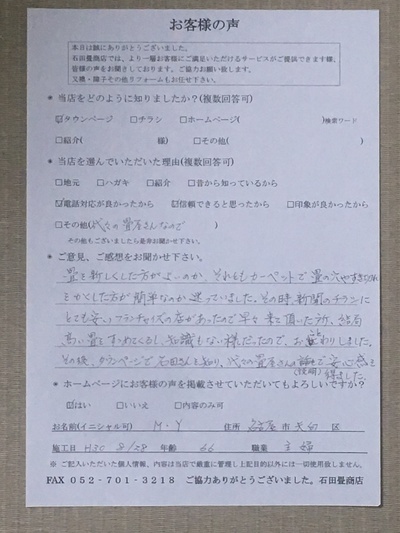 お客様の声
本日は誠にありがとうございました。
石田畳商店では、より一層お客様にご満足いただけるサービスがご提供できます様、
皆様の声をお聞きしております。ご協力お願い致します。
又襖・障子その他リフォームもお任せ下さい。
* 当店をどのように知りましたか?(複数回答可)
☑タウンページ □チラシ □ホームページ( )検索ワード
□紹介( 様) □その他( )
* 当店を選んでいただいた理由(複数回答可)
□地元 □ハガキ □紹介 □昔から知っているから
☑電話対応が良かったから ☑信頼できると思ったから □印象が良かったから
□その他(代々の畳屋さんなので )
その他もございましたら是非お聞かせ下さい。
* ご意見、ご感想をお聞かせ下さい。
畳を新しくした方がよいのか、それもカーペットで畳の穴やすき
とかくした方が簡単なのか迷っていました。その時、新聞のチラシに
とても安いフランチャイズの店があったので早々来て頂いた所、結局
高い畳をすすめてくるし、知識もない様だったので、お断わりしました。
その後、タウンページで石田さんを知り、代々の畳屋さんの (説明)で安心感を
得ました。
* ホームページにお客様の声を掲載させていただいてもよろしいですか?
☑はい □いいえ □内容のみ可
お名前(イニシャル可) M・Y 住所 名古屋 市 天白 区
施工日 H30 8/28 年齢 66 職業 主婦
※ ご記入いただいた個人情報、内容は当店で厳重に管理し上記目的以外には一切使用致しません。
FAX 052-701-3218 ご協力ありがとうございました。石田畳商店